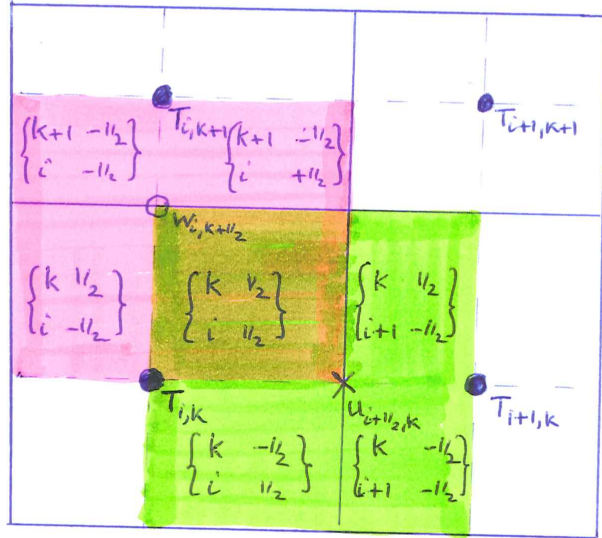 T_{i,k+1}
T_{i+1,k+1}
{k+1 -1/2
i -1/2}
{k+1 -1/2
i +1/2}
w_{i,k+1/2}
{k 1/2
i -1/2}
{k 1/2
i 1/2}
{k 1/2
i+1 -1/2}
T_{i,k}
u_{i+1/2,k}
T_{i+1,k}
{k -1/2
i 1/2}
{k -1/2
i+1 -1/2}